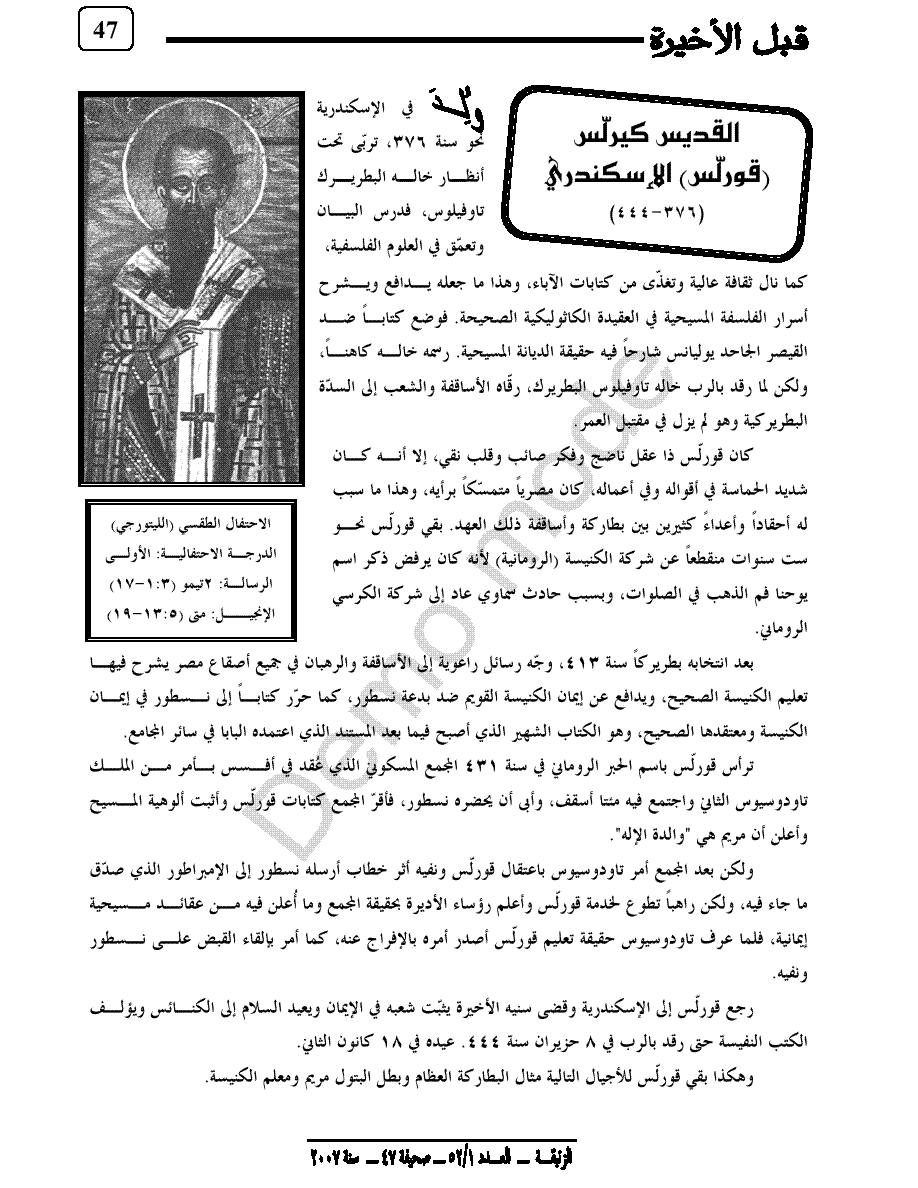 47
قبل الأخيرة
القديس كيرلّس
(قورلّس) الإسكندري
(٣٧٦-٤٤٤)
وُلِدَ في الإسكندرية
نحو سنة ٣٧٦، تربّى تحت
أنظار خاله البطريرك
تاوفيلوس، فدرس البيان
وتعمّق في العلوم الفلسفية،
كما نال ثقافة عالية وتغذّى من كتابات الآباء، وهذا ما جعله يدافع ويشرح
أسرار الفلسفة المسيحية في العقيدة الكاثوليكية الصحيحة. فوضع كتاباً ضد
القيصر الجاحد يوليانس شارحاً فيه حقيقة الديانة المسيحية. رسمه خاله كاهناً،
ولكن لما رقد بالرب خاله تاوفيلوس البطريرك، رقّاه الأساقفة والشعب إلى السدّة
البطريركية وهو لم يزل في مقتبل العمر.
كان قورلّس ذا عقل ناضج وفكر صائب وقلب نقي، إلا أنه كان
شديد الحماسة في أقواله وفي أعماله، كان مصرياً متمسّكاً برأيه، وهذا ما سبب
له أحقاداً وأعداءً كثيرين بين بطاركة وأساقفة ذلك العهد. بقي قورلّس نحو
ست سنوات منقطعاً عن شركة الكنيسة (الرومانية) لأنه كان يرفض ذكر اسم
يوحنا فم الذهب في الصلوات، وبسبب حادث سماوي عاد إلى شركة الكرسي
الروماني.
الاحتفال الطقسي (الليتورجي)
الدرجة الاحتفالية: الأولى
الرسالة: ٢تيمو (١:٣-١٧)
الإنجيل: متى (١٣:٥-١٩)
بعد انتخابه بطريركاً سنة ٤١٣، وجّه رسائل راعوية إلى الأساقفة والرهبان في جميع أصقاع مصر يشرح فيها
تعليم الكنيسة الصحيح، ويدافع عن إيمان الكنيسة القويم ضد بدعة نسطور، كما حرّر كتاباً إلى نسطور في إيمان
الكنيسة ومعتقدها الصحيح، وهو الكتاب الشهير الذي أصبح فيما بعد المستند الذي اعتمده البابا في سائر المجامع.
ترأس قورلّس باسم الحبر الروماني في سنة ٤٣١ المجمع المسكوني الذي عُقد في أفسس بأمر من الملك
تاودوسيوس الثاني واجتمع فيه مئتا أسقف، وأبى أن يحضره نسطور، فأقرّ المجمع كتابات قورلّس وأثبت ألوهية المسيح
وأعلن أن مريم هي "والدة الإله".
ولكن بعد المجمع أمر تاودوسيوس باعتقال قورلّس ونفيه أثر خطاب أرسله نسطور إلى الإمبراطور الذي صدّق
ما جاء فيه، ولكن راهباً تطوع لخدمة قورلّس وأعلم رؤساء الأديرة بحقيقة المجمع وما أُعلن فيه من عقائد مسيحية
إيمانية، فلما عرف تاودوسيوس حقيقة تعليم قورلّس أصدر أمره بالإفراج عنه، كما أمر بإلقاء القبض على نسطور
ونفيه.
رجع قورلّس إلى الإسكندرية وقضى سنيه الأخيرة يثبّت شعبه في الإيمان ويعيد السلام إلى الكنائس ويؤلف
الكتب النفيسة حتى رقد بالرب في ٨ حزيران سنة ٤٤٤. عيده في ١٨ كانون الثاني.
وهكذا بقي قورلّس للأجيال التالية مثال البطاركة العظام وبطل البتول مريم ومعلم الكنيسة.
الزنبقة – العدد ٥٢/١ – صحيفة ٤٧ – سنة ٢٠٠٧
Demo mode